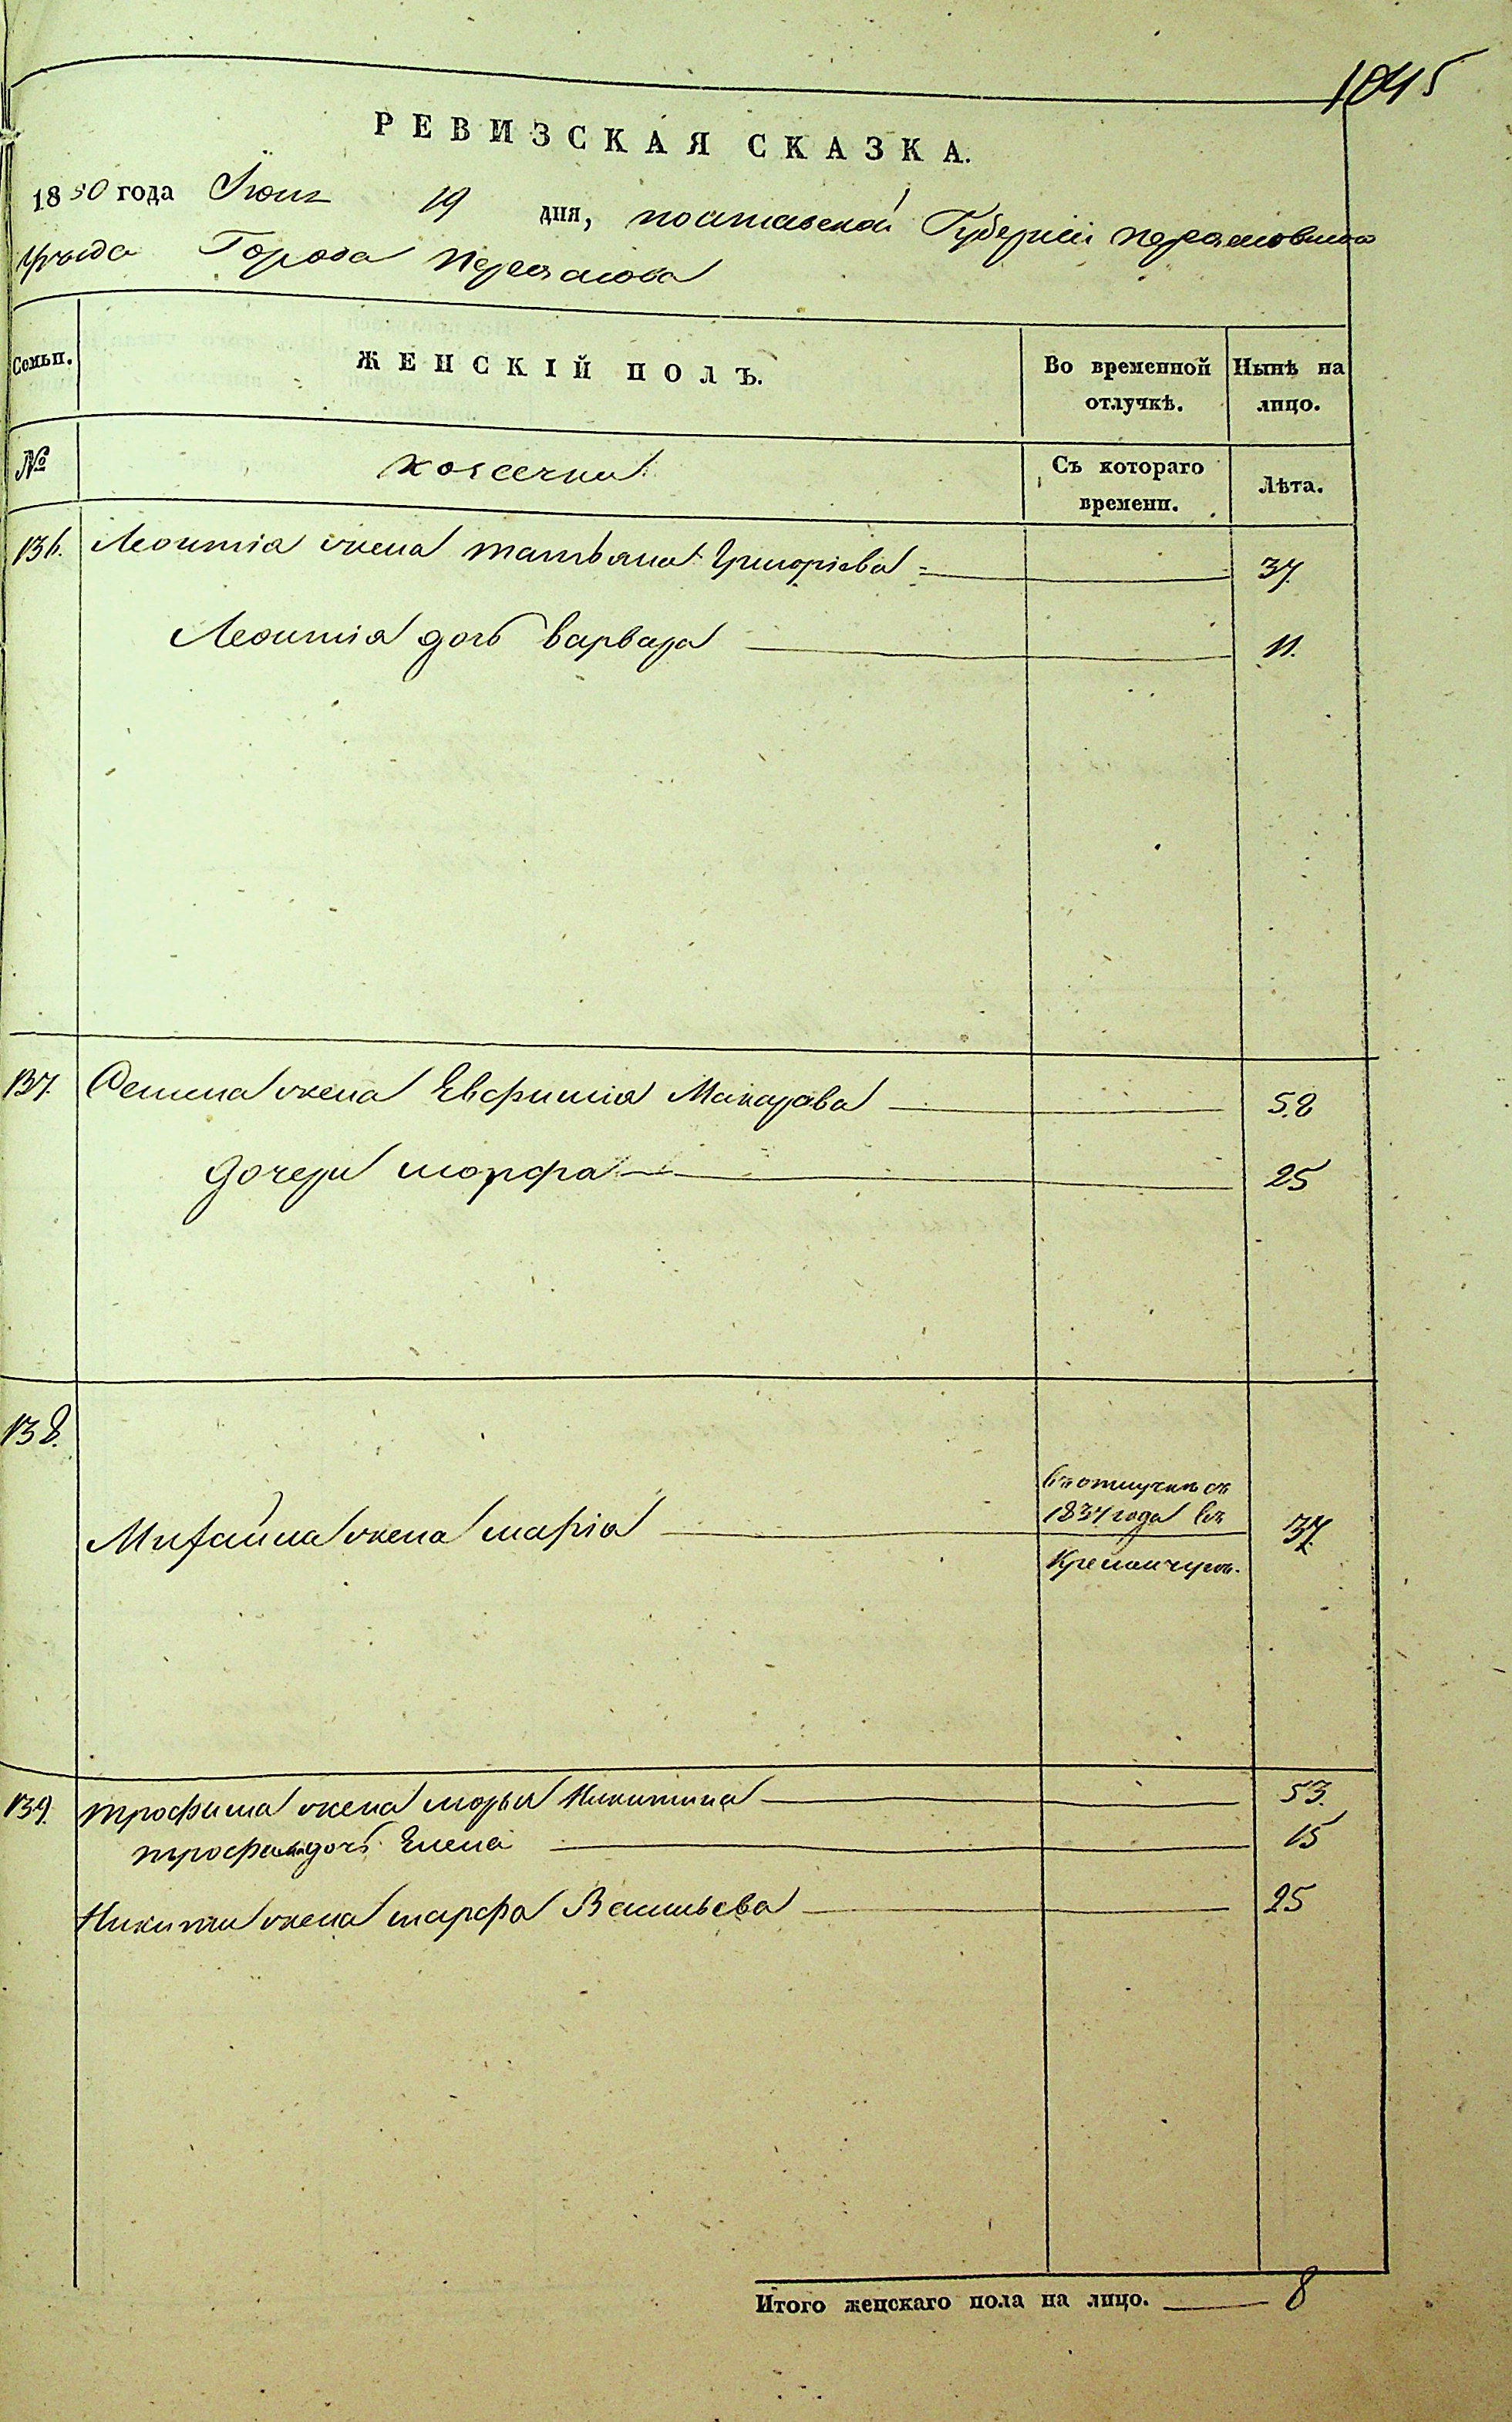 1045
РЕВИЗСКАЯ СКАЗКА.
1850 года Іюня 19 дня, полтавской Губерніи переяслов
уѣзда Города Переяслова
Семьи. ЖЕНСКІЙ ПОЛЪ. Во временной отлучкѣ. Нынѣ на лицо.
№ Съ котораго времени. Лѣта.
136. Леонтія жена татьяна Григоріева 37.
Леонтія дочь варвара 11.
137. Семена жена Евфимія Макарова 58
дочери марфа 25
138.
въ отлучкѣ съ
1837 года въ
Михайла жена марія 37.
Кременчуге.
139. трофима жена марья Никитина 53.
трофима дочь Елена 15
Никиты жена марфа Васильева 25
Итого женскаго пола на лицо. 8